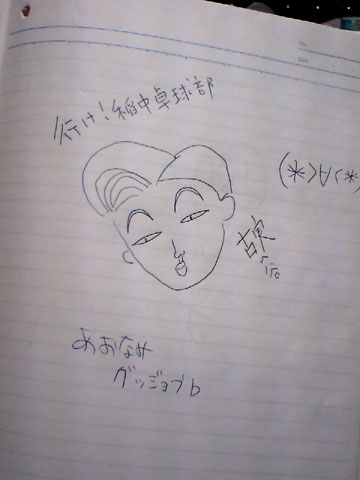 行け!稲中卓球部
(*>∀<*)
あおなみ
グッジョブb